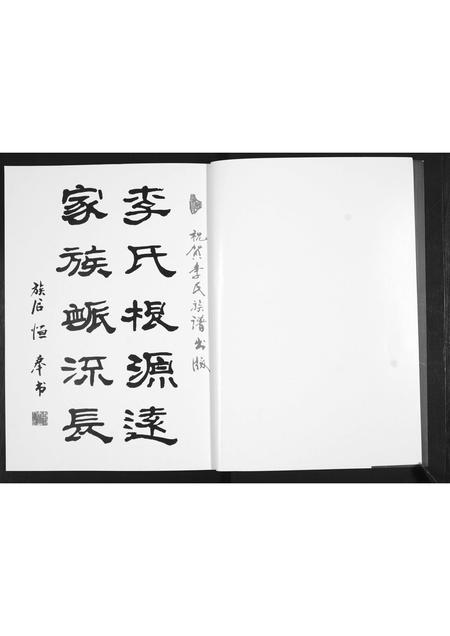 祝贺李氏族谱出版
李氏根源远
家族脈流长
族后恒奉书